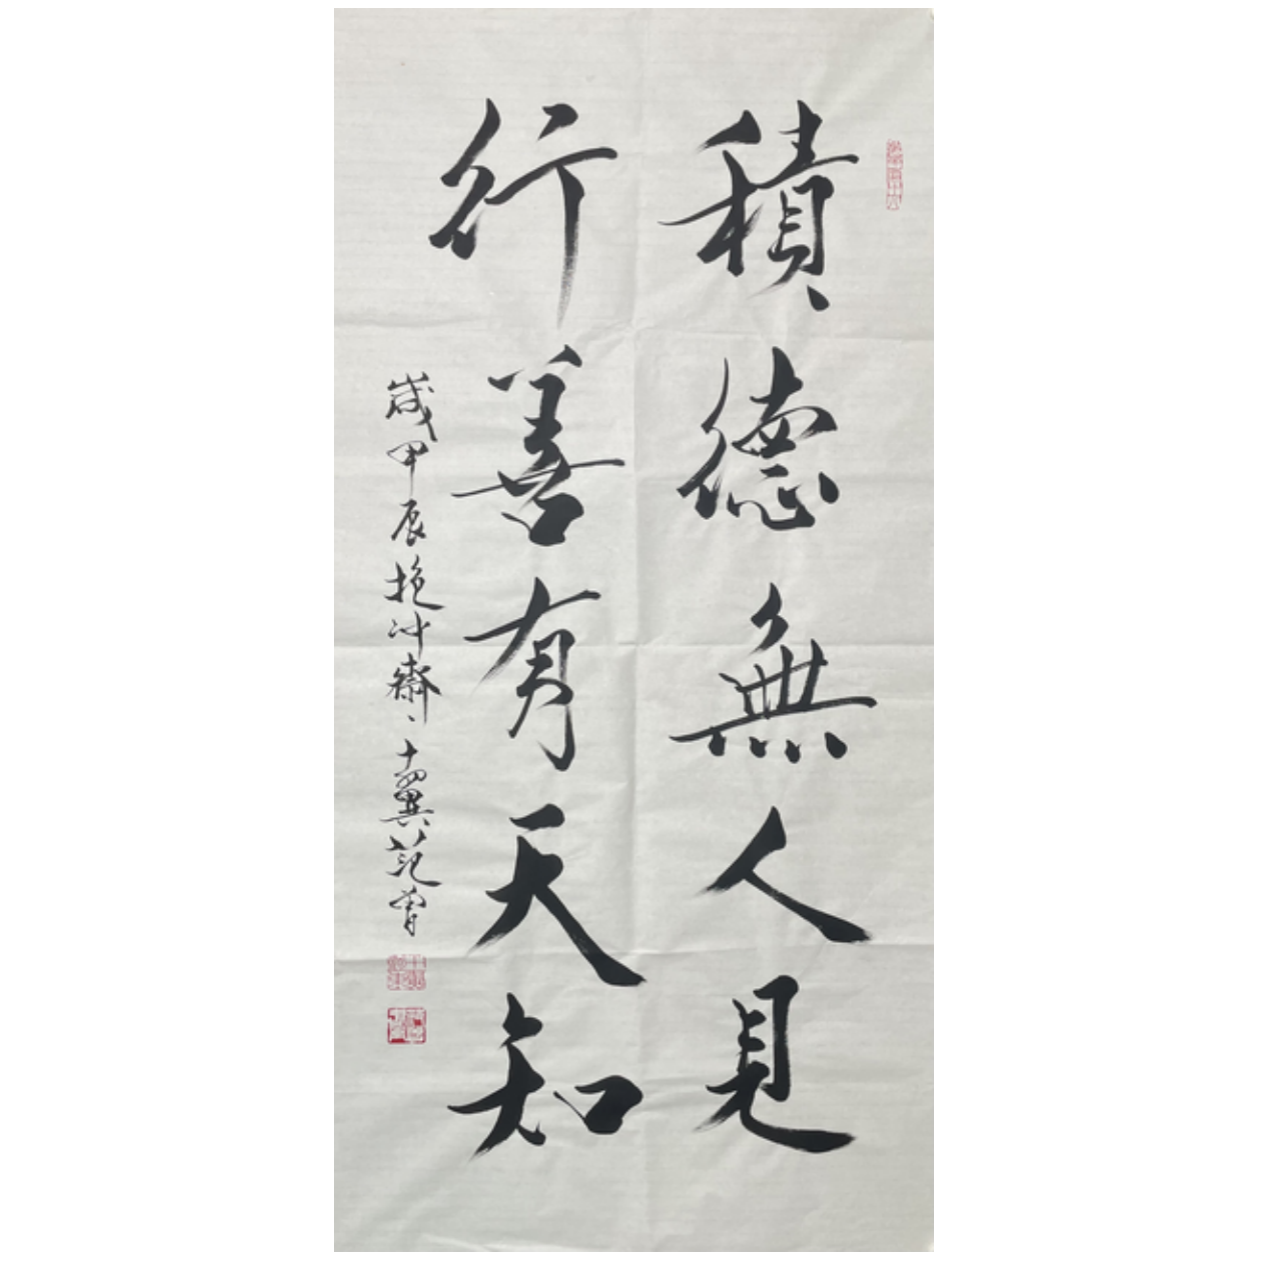 積德無人見
行善有天知
歲甲辰抱沖齋十翼范曾